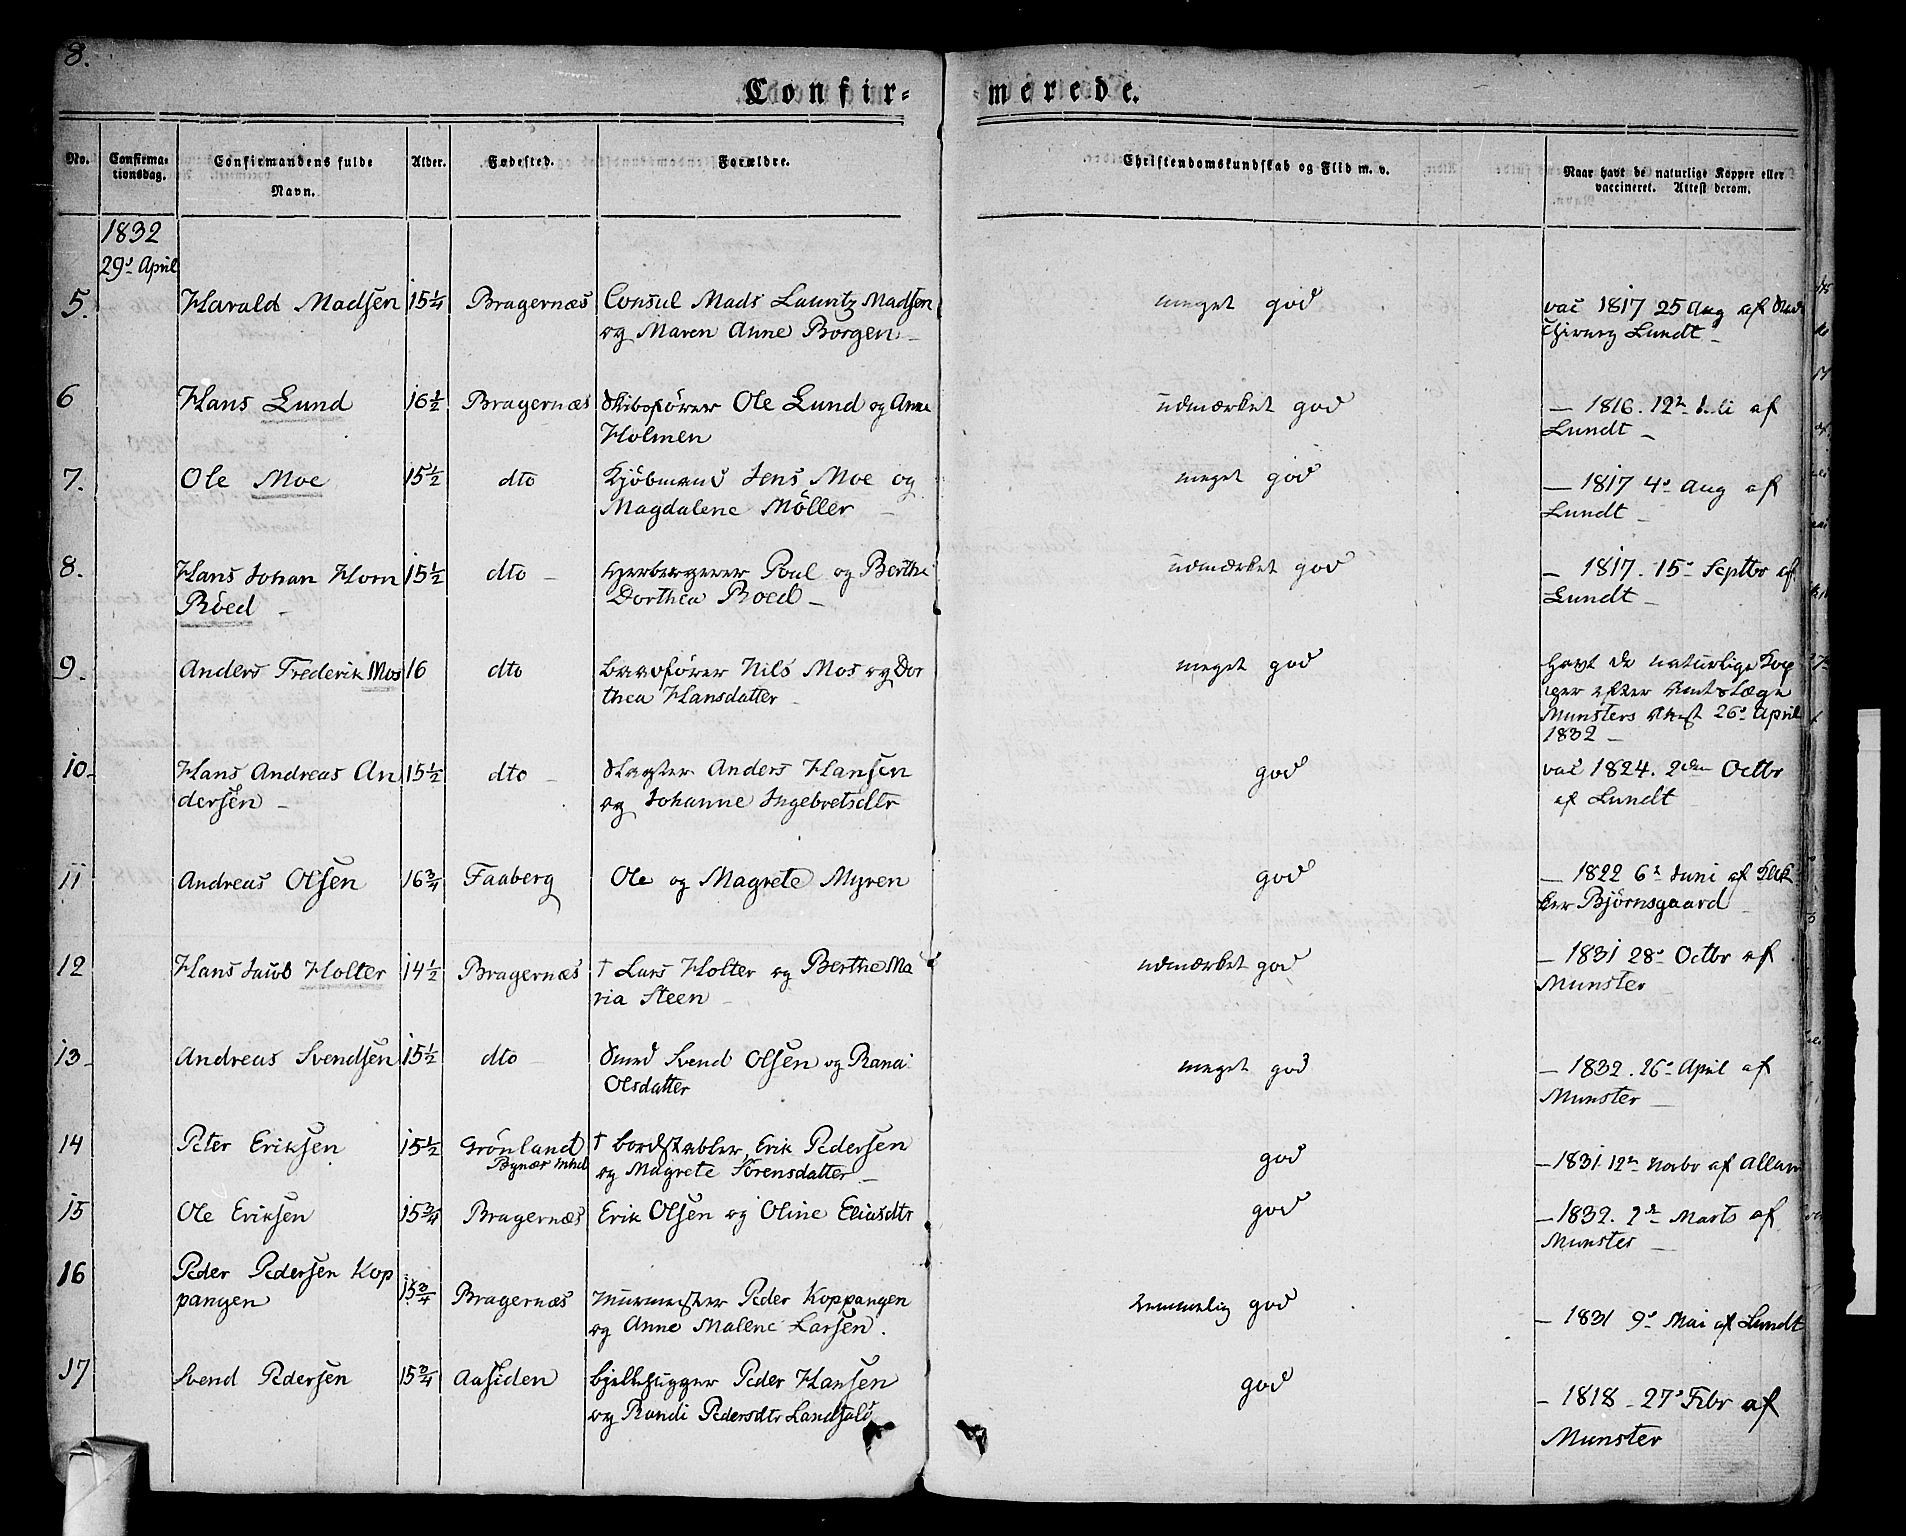 8.
Confir-
merede.
No.
Confirma-
tionsdag.
Confirmandens fulde
Navn.
Alder.
Fødested.
Forældre.
Christendomskundskab og Flid m. v.
Naar havt de naturlige Kopper eller
vaccineret. Attest derom.
1832
29de April
5. Harald Madsen 15 1/4 Bragernæs Consul Mads Lauritz Madsen meget god vac 1817 25 Aug af
og Maren Anne Borgen Chirurg Lundt
6 Hans Lund 16 1/2 Bragernæs Skibsfører Ole Lund og Anne udmærket god 1816. 12te Juli af
Holmen Lundt
7. Ole Moe 15 1/2 dto Kjøbmand Jens Moe og meget god 1817 4de Aug af
Magdalene Möller Lundt
8. Hans Johan Horn 15 1/2 dto Herbergerer Poul og Berthe udmærket god 1817. 15de Septbr af
Röed Dorthea Roed Lundt
9. Anders Frederik Mos 16 dto Nils Mos og Dor meget god havt de naturlige Kop
thea Hansdatter per efter Amtslæge
Munsters Attest 26de April
1832
10 Hans Andreas An 15 1/2 dto Slagter Anders Hansen god vac 1824. 2den Octbr
dersen og Johanne Ingebretsdtr af Lundt
11 Andreas Olsen 16 3/4 Faaberg Ole og Magrete Myren god 1822 6te Juni af Klok
ker Bjørnsgaard
12 Hans Jacob Holter 14 1/2 Bragernæs † Lars Holter og Berthe Ma udmærket god 1831 28de Octbr af
ria Steen Munster
13 Andreas Svendsen 15 1/2 dto Smed Svend Olsen og Rana meget god 1832. 26de April af
Olsdatter Munster
14 Peter Eriksen 15 1/2 Grönland † bordstabler Erik Pedersen god 1831 12te Novbr af
og Magrete Sörensdatter
15 Ole Eriksen 15 3/4 Bragernæs Erik Olsen og Oline Eliasdtr god 1832. 2de Marts af
Munster
16 Peder Pedersen Kop 15 3/4 Bragernæs Muurmester Peder Koppangen temmelig god 1831 9de Mai af Lundt
pangen og Anne Malene Larsen.
17 Svend Pedersen 15 3/4 Aasiden bjelkehugger Peder Hansen god 1818 27de Febr af
og Randi Pedersdtr Landfald Munster